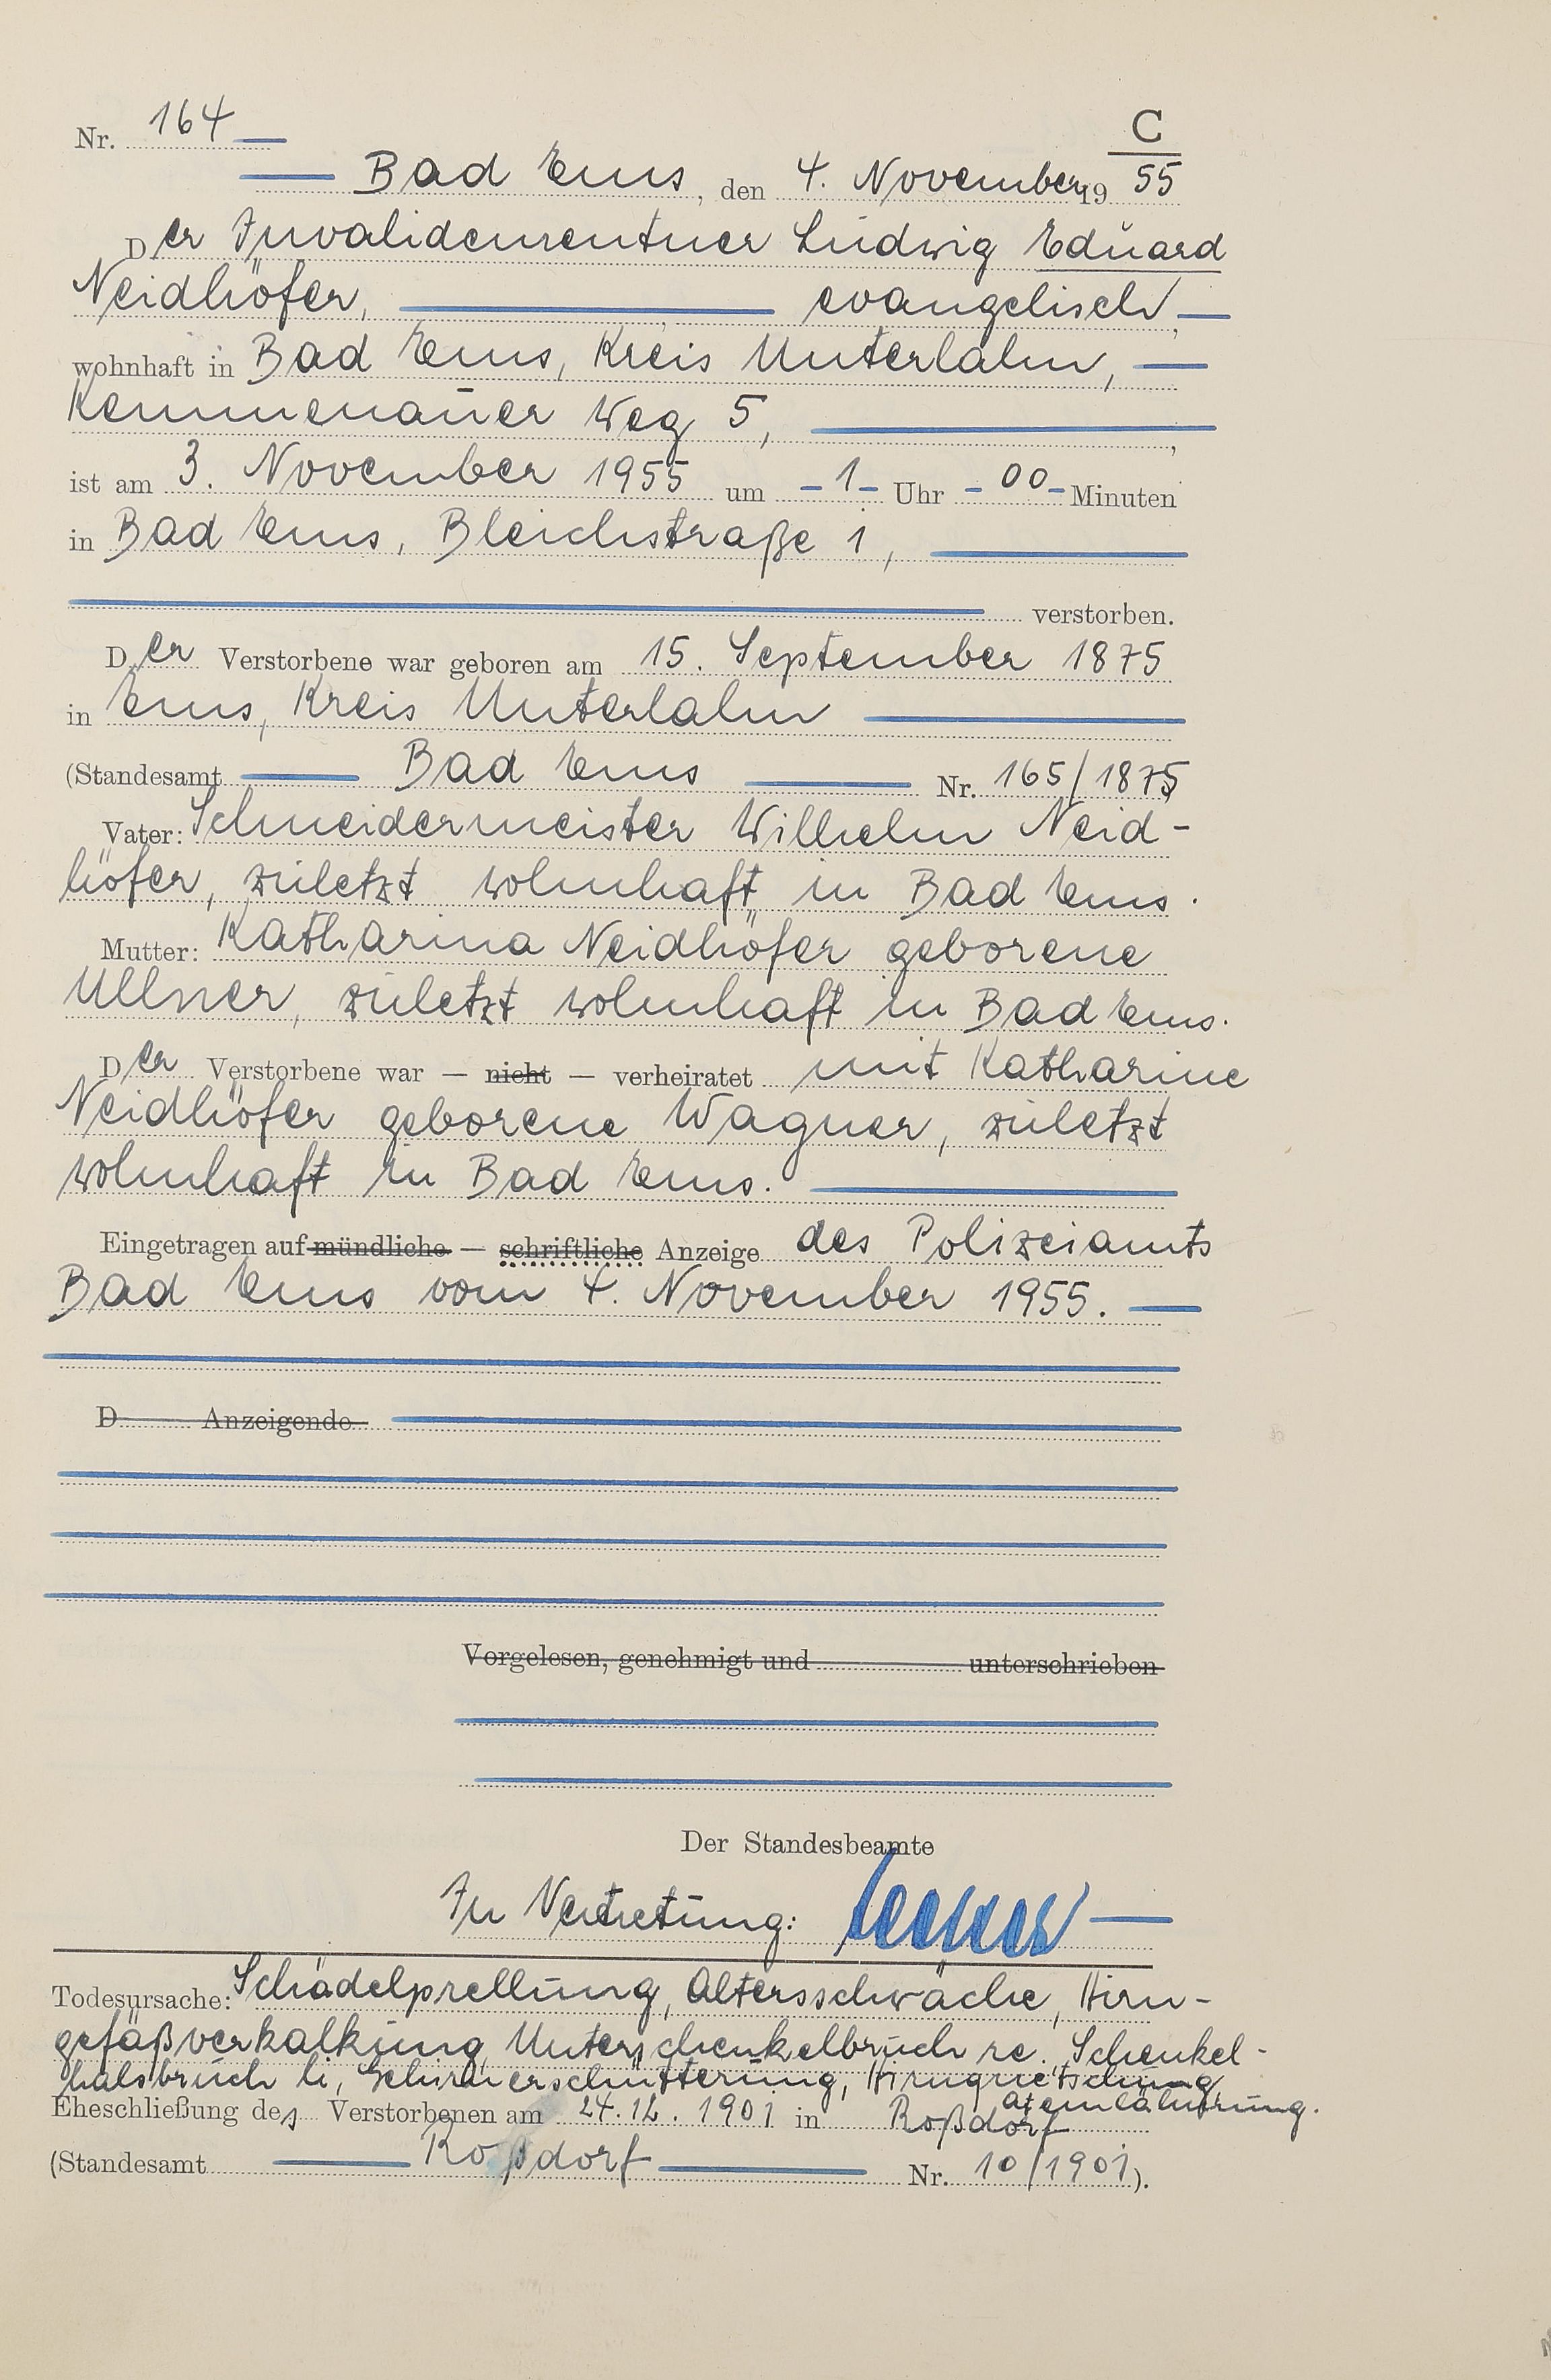 C
Nr. 164
Bad Ems, den 4. November 19 55
Der Invalidenrentner Ludwig Eduard
Neidhöfer, evangelisch,
wohnhaft in Bad Ems, Kreis Unterlahn,
Kemmenauer Weg 5,
ist am 3. November 1955 um - 1 - Uhr - 00 - Minuten
in Bad Ems, Bleichstraße 1,
verstorben.
Der Verstorbene war geboren am 15. September 1875
in Ems, Kreis Unterlahn
(Standesamt Bad Ems Nr. 165/1875
Vater: Schneidermeister Wilhelm Neid-
höfer, zuletzt wohnhaft in Bad Ems.
Mutter: Katharina Neidhöfer geborene
Ullner, zuletzt wohnhaft in Bad Ems.
Der Verstorbene war — nicht — verheiratet mit Katharine
Neidhöfer geborene Wagner, zuletzt
wohnhaft in Bad Ems.
Eingetragen auf mündliche — schriftliche Anzeige des Polizeiamts
Bad Ems vom 4. November 1955.
D Anzeigende
Vorgelesen, genehmigt und unterschrieben
Der Standesbeamte
In Vertretung:
Todesursache: Schädelprellung, Altersschwäche, Hirn-
gefäßverkalkung, Unterschenkelbruch re., Schenkel-
halsbruch li, Gehirnerschütterung, Hirnquetschung,
Atemlähmung.
Eheschließung des Verstorbenen am 24.12.1901 in Roßdorf
(Standesamt Roßdorf Nr. 10/1901).